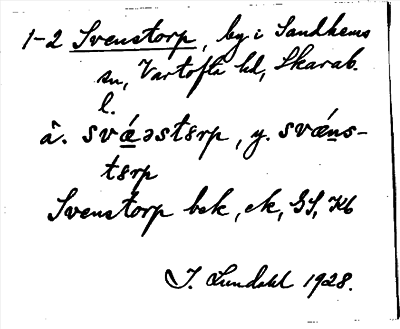 1-2 Svenstorp, by i Sandhems
sn, Vartofta hd, Skarab.
l.
â. svǽəstɛrp, y. svǽns-
tɛrp
Svenstorp bek, ek, GS, Kb
J. Lundahl 1928.